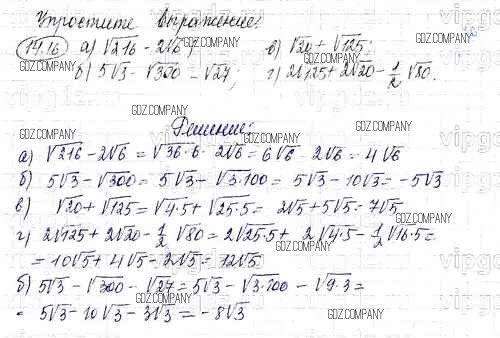 Упростите выражение:
14.16 а) √216 - 2√6; в) √20 + √125;
б) 5√3 - √300 - √27; г) 2√125 + 2√20 - 1/2 √80.
Решение:
а) √216 - 2√6 = √36·6 - 2√6 = 6√6 - 2√6 = 4√6
б) 5√3 - √300 = 5√3 + √3·100 = 5√3 - 10√3 = -5√3
в) √20 + √125 = √4·5 + √25·5 = 2√5 + 5√5 = 7√5
г) 2√125 + 2√20 - 1/2 √80 = 2√25·5 + 2√4·5 - 1/2 √16·5 =
= 10√5 + 4√5 - 2√5 = 12√5
б) 5√3 - √300 - √27 = 5√3 - √3·100 - √9·3 =
= 5√3 - 10√3 - 3√3 = -8√3